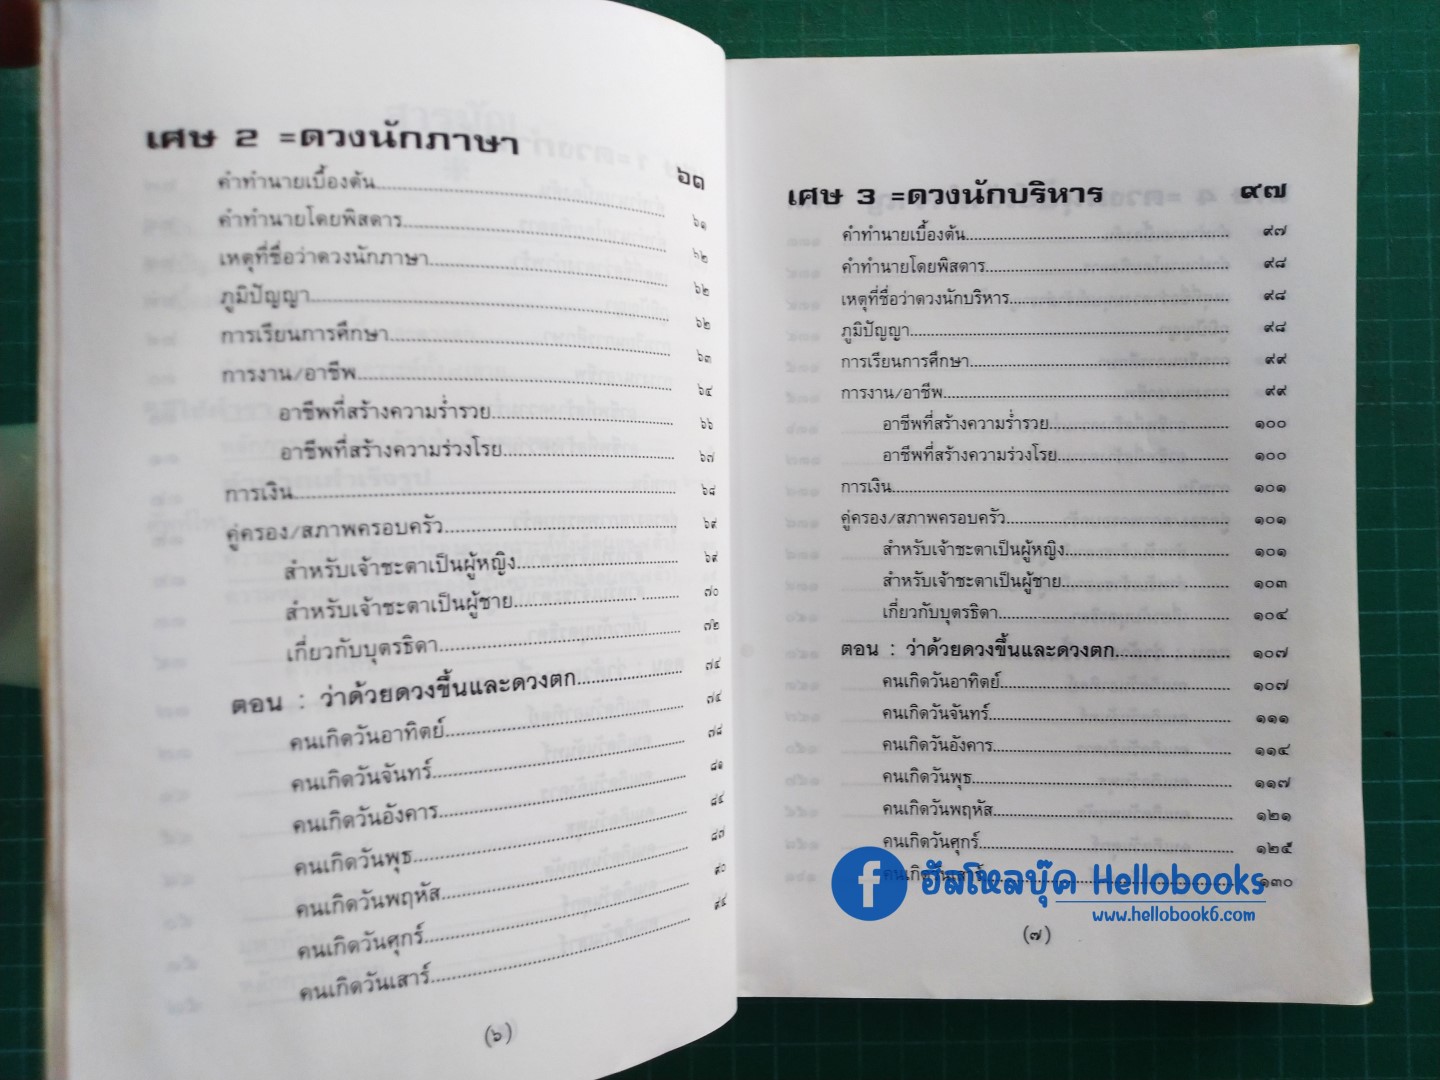 เศษ 2 =ดวงนักภาษา ๖๑
คำทำนายเบื้องต้น ๖๑
คำทำนายโดยพิสดาร ๖๒
เหตุที่ชื่อว่าดวงนักภาษา ๖๒
ภูมิปัญญา ๖๒
การเรียนการศึกษา ๖๓
การงาน/อาชีพ ๖๔
อาชีพที่สร้างความร่ำรวย ๖๖
อาชีพที่สร้างความร่วงโรย ๖๗
การเงิน ๖๘
คู่ครอง/สภาพครอบครัว ๖๙
สำหรับเจ้าชะตาเป็นผู้หญิง ๖๙
สำหรับเจ้าชะตาเป็นผู้ชาย ๗๐
เกี่ยวกับบุตรธิดา ๗๒
ตอน : ว่าด้วยดวงขึ้นและดวงตก ๗๔
คนเกิดวันอาทิตย์ ๗๔
คนเกิดวันจันทร์ ๗๘
คนเกิดวันอังคาร ๘๑
คนเกิดวันพุธ ๘๔
คนเกิดวันพฤหัส ๘๗
คนเกิดวันศุกร์ ๙๐
คนเกิดวันเสาร์ ๙๔
(๖)
เศษ 3 =ดวงนักบริหาร ๙๗
คำทำนายเบื้องต้น ๙๗
คำทำนายโดยพิสดาร ๙๘
เหตุที่ชื่อว่าดวงนักบริหาร ๙๘
ภูมิปัญญา ๙๘
การเรียนการศึกษา ๙๙
การงาน/อาชีพ ๙๙
อาชีพที่สร้างความร่ำรวย ๑๐๐
อาชีพที่สร้างความร่วงโรย ๑๐๐
การเงิน ๑๐๑
คู่ครอง/สภาพครอบครัว ๑๐๑
สำหรับเจ้าชะตาเป็นผู้หญิง ๑๐๑
สำหรับเจ้าชะตาเป็นผู้ชาย ๑๐๓
เกี่ยวกับบุตรธิดา ๑๐๔
ตอน : ว่าด้วยดวงขึ้นและดวงตก ๑๐๗
คนเกิดวันอาทิตย์ ๑๐๗
คนเกิดวันจันทร์ ๑๑๑
คนเกิดวันอังคาร ๑๑๔
คนเกิดวันพุธ ๑๑๗
คนเกิดวันพฤหัส ๑๒๑
คนเกิดวันศุกร์ ๑๒๕
คนเกิดวันเสาร์ ๑๓๐
ฮัลโหลบุ๊ค Hellobooks
www.hellobook6.com
(๗)